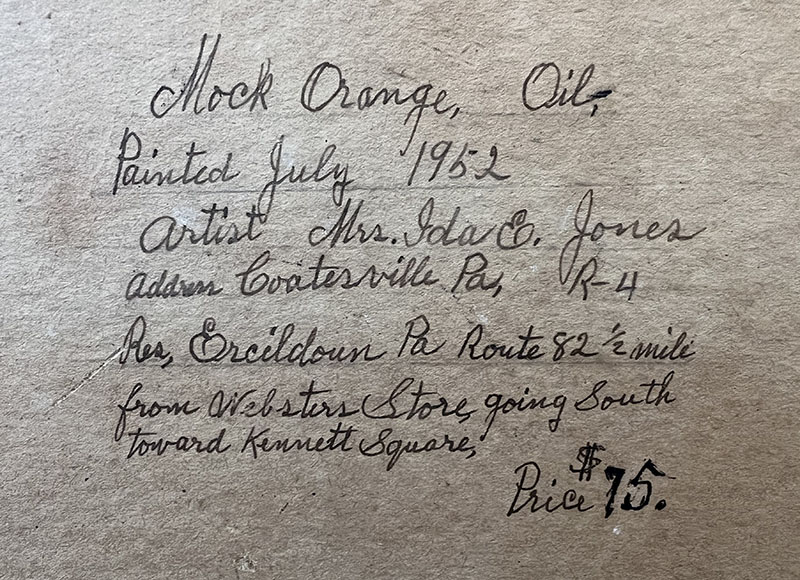 Mock Orange, Oil,
Painted July 1952
Artist Mrs. Ida E. Jones
Address Coatesville Pa, R-4
Res, Ercildoun Pa Route 82 ½ mile
from Websters Store, going South
toward Kennett Square,
Price $75.